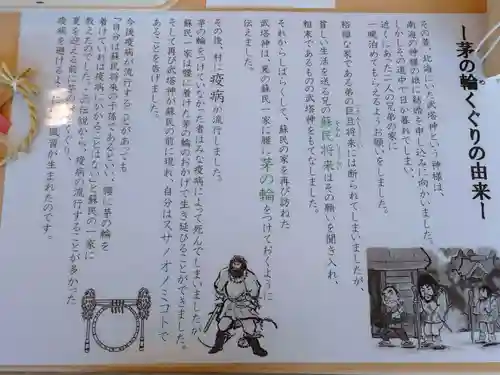 ―茅の輪くぐりの由来―
その昔、北海にいた武塔神という神様は、
南海の神様の娘に結婚を申し込みに向かいました。
しかしその道中で日が暮れてしまい、
近くにあった二人の兄弟の家に
一晩泊めてもらえるようお願いをしました。
裕福な家である弟の巨旦将来には断られてしまいましたが、
貧しい生活を送る兄の蘇民将来はその願いを聞き入れ、
粗末であるものの武塔神をもてなしました。
それからしばらくして、蘇民の家を再び訪ねた
武塔神は、兄の蘇民一家に腰に茅の輪をつけておくように
伝えました。
その後、村に疫病が流行しました。
茅の輪をつけていなかった者はみな疫病によって死んでしまいましたが、
蘇民一家は腰に着けた茅の輪のおかげで生き延びることができました。
そして再び武塔神が蘇民の前に現れ、自分はスサノオノミコトで
あることを告げました。
今後疫病が流行することがあっても
『自分は蘇民将来の子孫であるといい、腰に茅の輪を
着けていれば疫病にかかることはない』と蘇民の一家に
教えたのでした。この伝説から、疫病の流行することが多かった
夏を迎える前に茅の輪をくぐり、
疫病を避けるように
風習が生まれたのです。